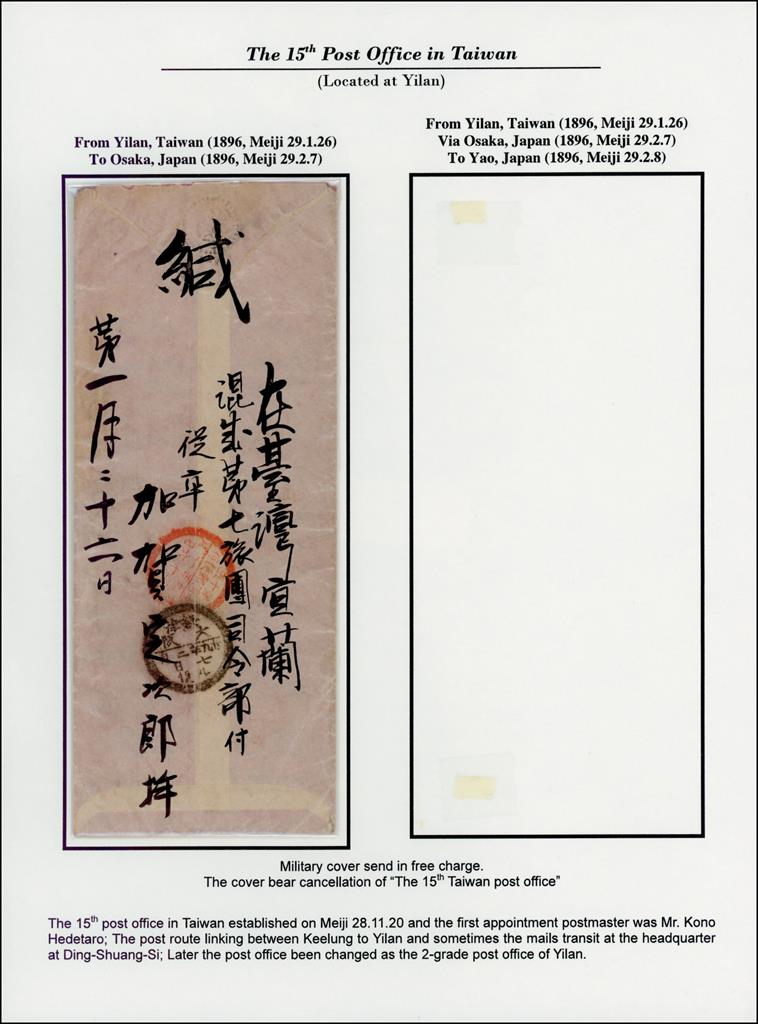 The 15th Post Office in Taiwan
(Located at Yilan)
From Yilan, Taiwan (1896, Meiji 29.1.26)
To Osaka, Japan (1896, Meiji 29.2.7)
From Yilan, Taiwan (1896, Meiji 29.1.26)
Via Osaka, Japan (1896, Meiji 29.2.7)
To Yao, Japan (1896, Meiji 29.2.8)
緘
在臺灣宜蘭
混成第七旅團司令部付
從卒
加賀定次郎拝
第一月二十六日
Military cover send in free charge.
The cover bear cancellation of “The 15th Taiwan post office”
The 15th post office in Taiwan established on Meiji 28.11.20 and the first appointment postmaster was Mr. Kono
Hedetaro; The post route linking between Keelung to Yilan and sometimes the mails transit at the headquarter
at Ding-Shuang-Si; Later the post office been changed as the 2-grade post office of Yilan.